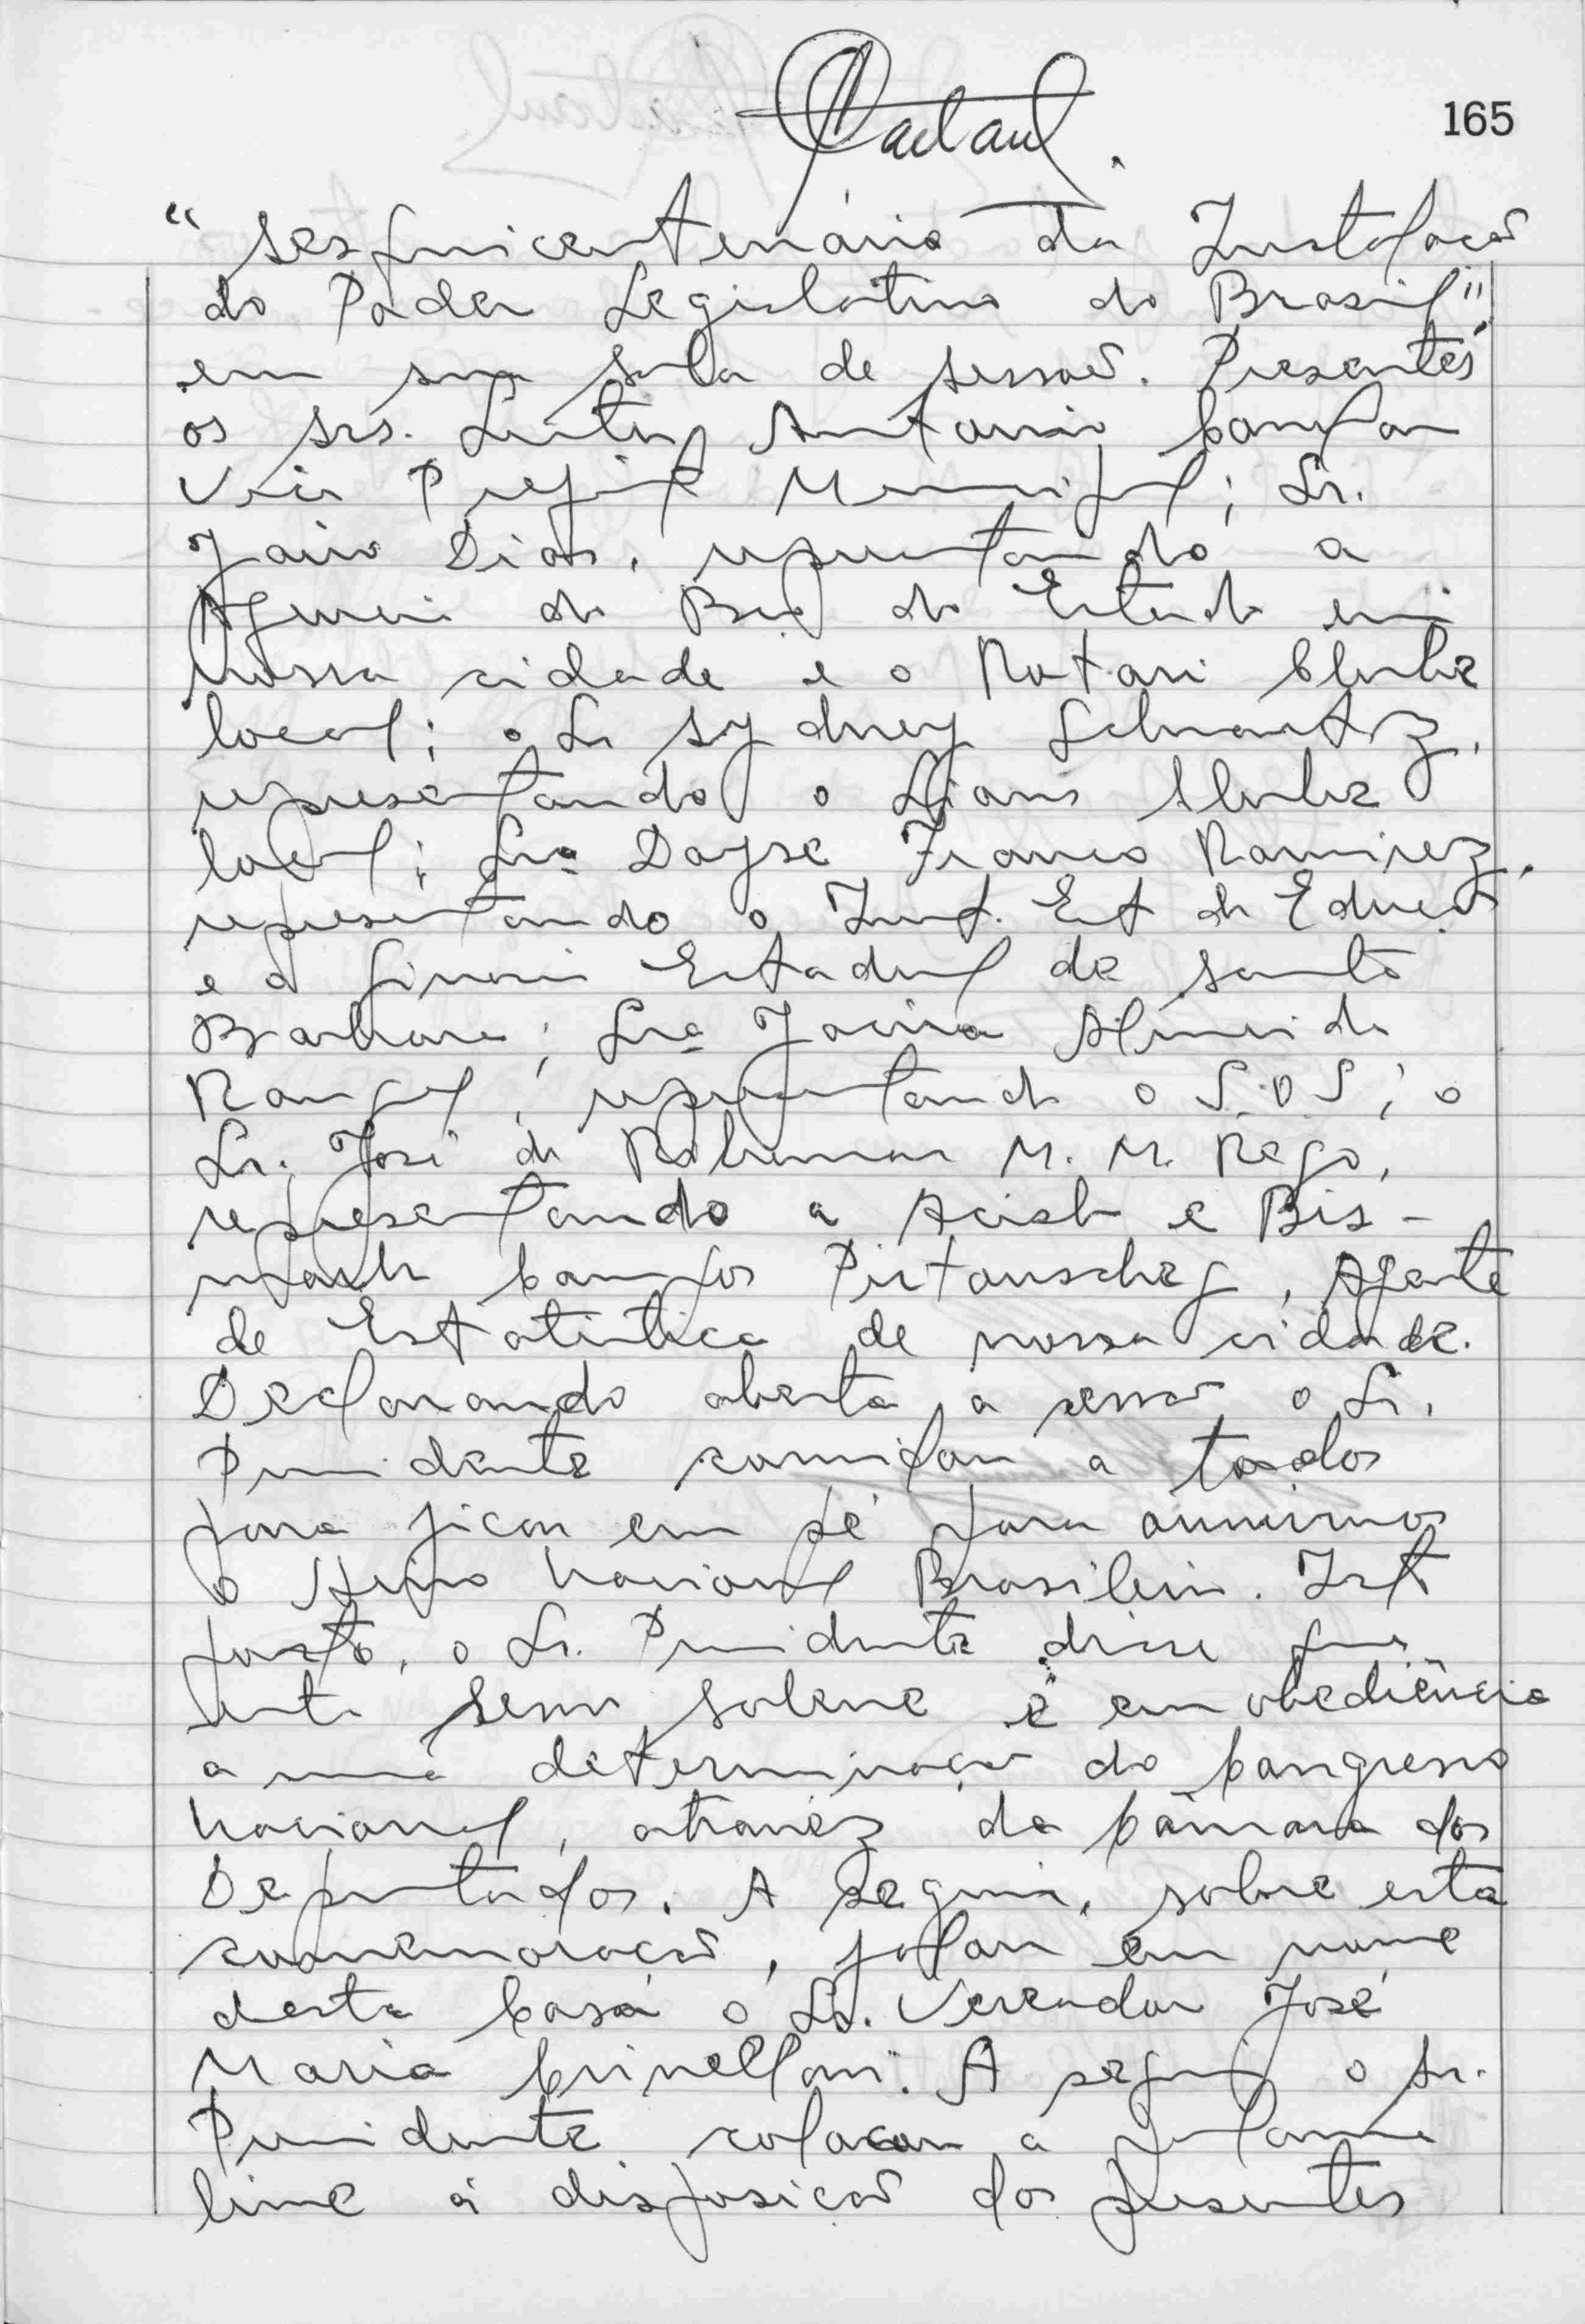 165
"Sesquicentenário da Instalação
do Poder Legislativo do Brasil"
em sua sala de sessão. Presentes
os srs. Antonio
Vice Prefeito Municipal; Sr.
Jairo Dias, representando a
Agencia do Bco do Estado em
nossa cidade e o Rotari Clube
local; o Sr Sydney Schwartz,
representando o Lions Clube
local; Sra Dayse Franco Ramirez,
representando o Inst. Est de Educação
e o Ginasio Estadual de Santa
Barbara; Sra Jacira Almeida
Rangel, representando o S.O.S; o
Sr. José de M. M. Rego,
representando a Acisb e Bis-
mark Campos , Agente
de Estatistica de nossa cidade.
Declarando aberta a sessão o Sr.
Presidente convidou a todos
para ficar em pé para ouvirmos
o Hino Nacional Brasileiro. Isto
posto, o Sr. Presidente disse que
esta sessão solene é em obediência
a uma determinação do Congresso
Nacional, atravez da Câmara dos
Deputados. A seguir, sobre esta
comemoração, falou em nome
desta casa o Sr. Vereador José
Maria . A seguir o Sr.
Presidente colocou a palavra
livre à disposição dos presentes